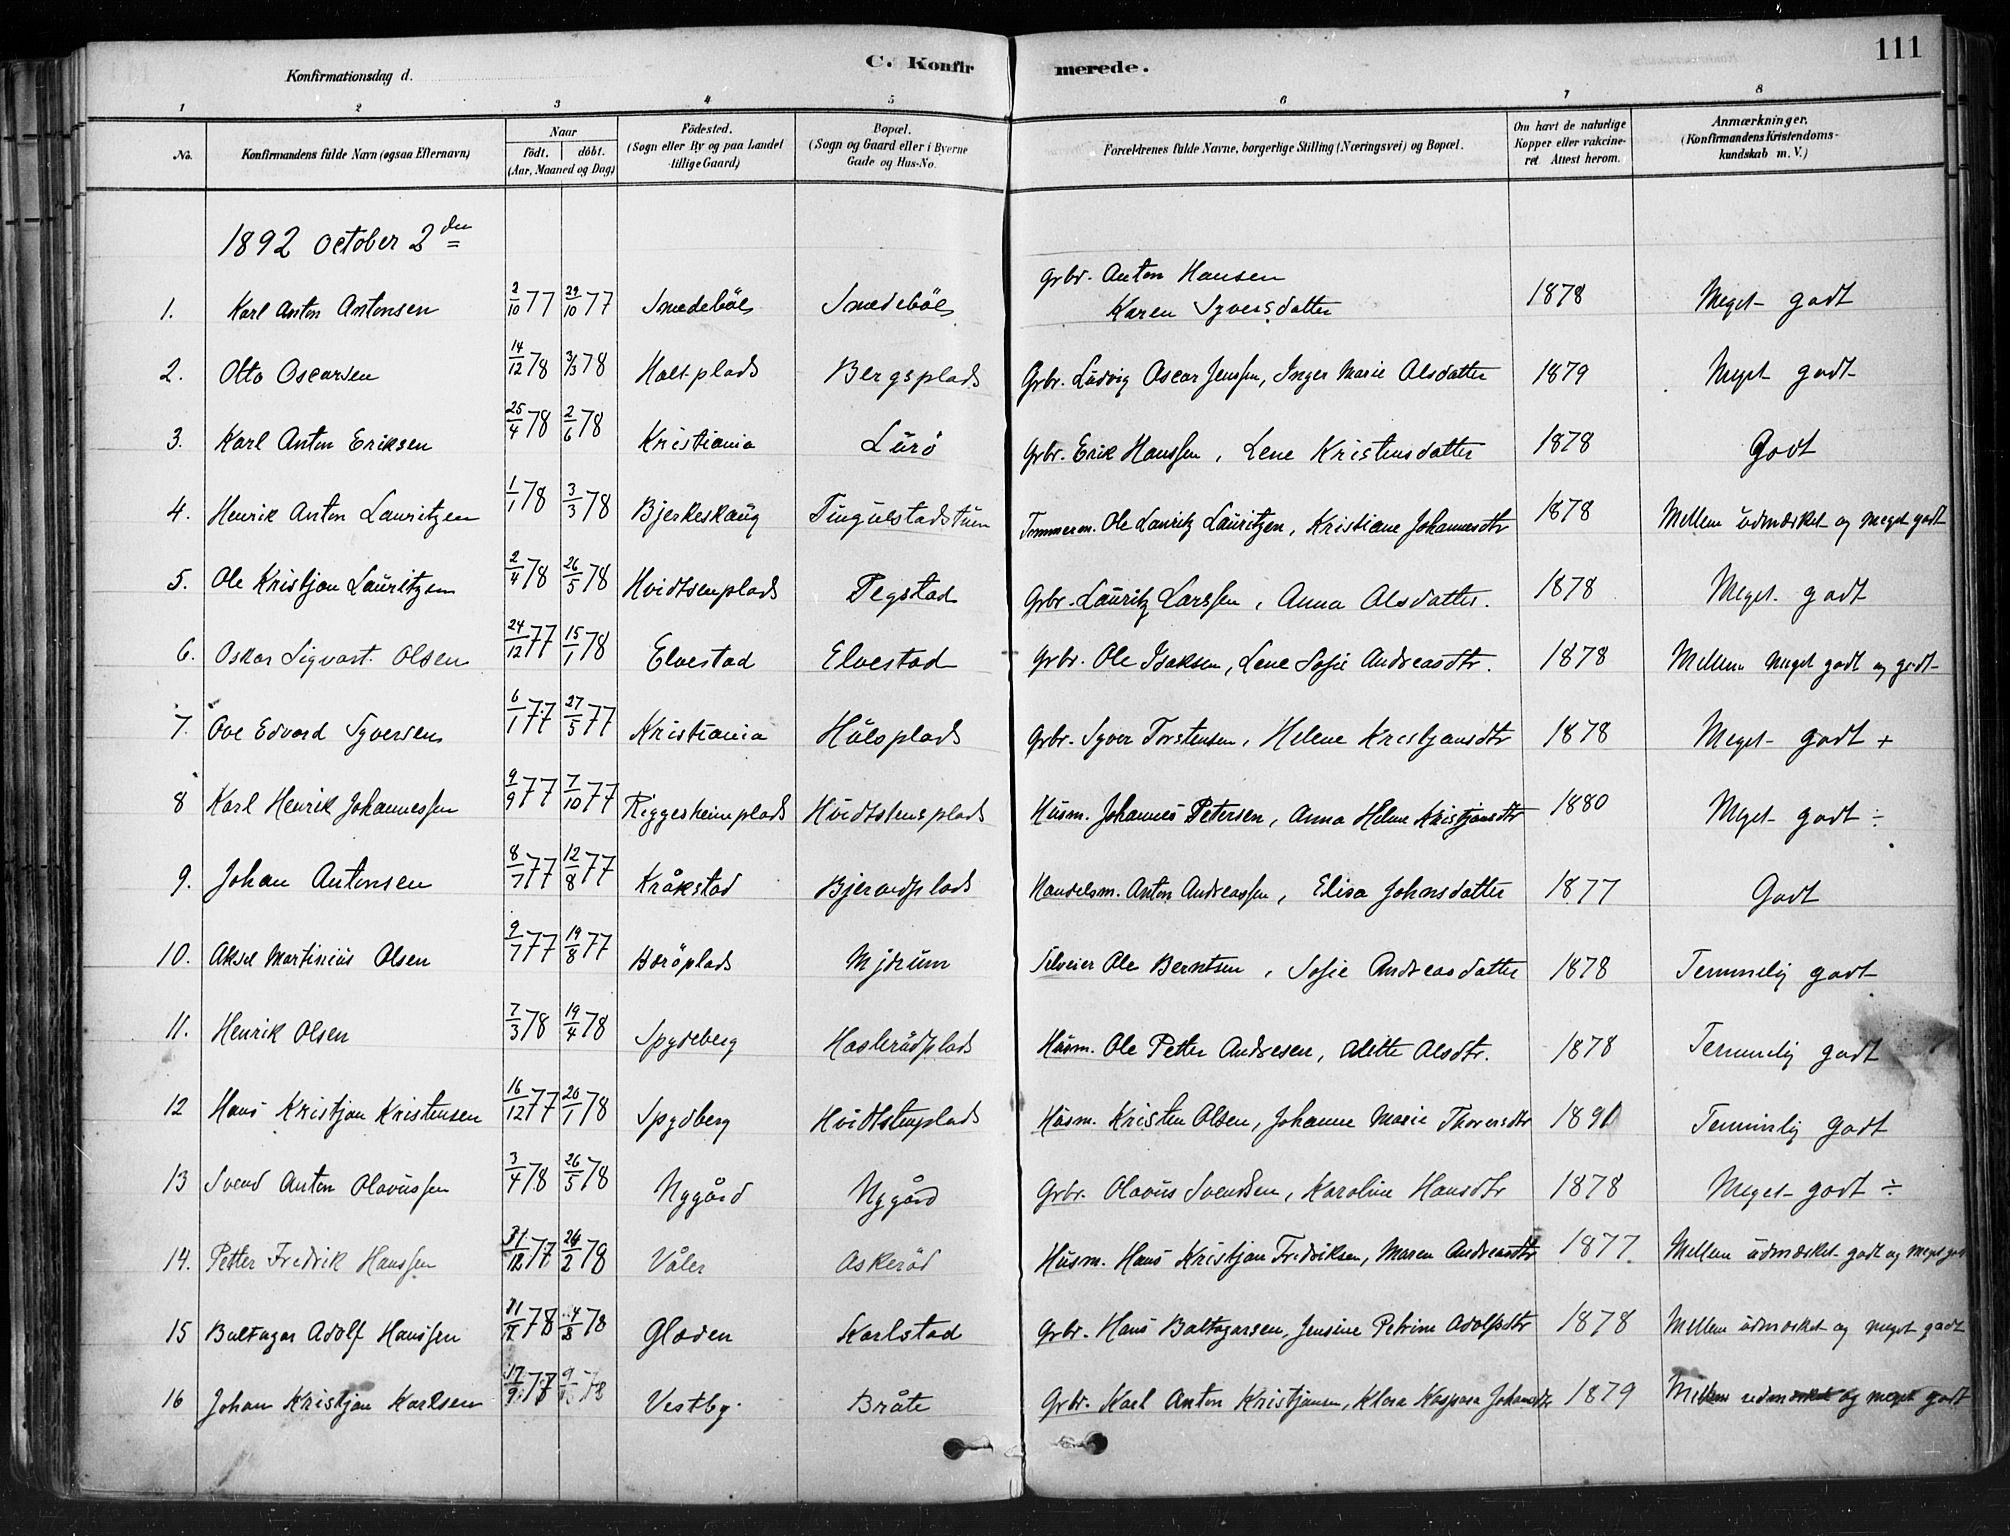 111
C. Konfirmerede.
Konfirmationsdag d.
1 2 3 4 5 6 7 8
No. Konfirmandens fulde Navn (ogsaa Efternavn) Naar födt. döbt. (Aar, Maaned og Dag) Födested. (Sogn eller By og paa Landet tillige Gaard) Bopæl. (Sogn og Gaard eller i Byerne Gade og Hus-No. Forældrenes fulde Navne, borgerlige Stilling (Næringsvei) og Bopæl. Om havt de naturlige Kopper eller vakcineret. Attest herom. Anmærkninger. (Konfirmandens Kristendomskundskab m. V.)
1892 October 2den
1. Karl Anton Antonsen 2/10 77 29/10 77 Smedeböl Smedeböl Grbr. Anton Hansen Karen Syversdatter 1878 Meget godt
2. Otto Oscarsen 14/12 78 3/3 78 Holtplads Bergsplads Grbr. Ludvig Oscar Jenssen, Inger Marie Olsdatter 1879 Meget godt
3. Karl Anton Eriksen 25/4 78 2/6 78 Kristiania Lurö Grbr. Erik Hanssen, Lene Kristensdatter 1878 Godt
4. Henrik Anton Lauritzen 1/1 78 3/3 78 Bjerkeskaug Tingulstadstuen Tømmerm. Ole Lauritz Lauritzen, Kristiane Johannesdtr 1878 Mellem udmærket og meget godt
5. Ole Kristjan Lauritzen 2/4 78 26/5 78 Hvidtsenplads Tegstad Grbr. Lauritz Larssen, Anna Olsdatter. 1878 Meget godt
6. Oskar Sigvart Olsen 24/12 77 15/1 78 Elvestad Elvestad Grbr. Ole Isaksen, Lene Sofie Andreasdtr. 1878 Mellem meget godt og godt
7. Ove Edvard Syversen 6/1 77 27/5 77 Kristiania Hålsplads Grbr. Syver Torstensen, Helene Kristjansdtr 1878 Meget godt +
8 Karl Henrik Johannessen 9/9 77 7/10 77 Riggesheimplads Hvidtstensplads Husm. Johannes Petersen, Anna Helene Kristjansdtr 1880 Meget godt ÷
9. Johan Antonsen 8/7 77 12/8 77 Kråkstad Handelsm. Anton Andreassen, Elisa Johnsdatter 1877 Godt
10. Aksel Martinius Olsen 9/7 77 19/8 77 Boröplads Mjrum Ole Berntsen, Sofie Andreasdatter 1878 Temmelig godt
11. Henrik Olsen 7/3 78 19/4 78 Spydeberg Haslerudplads Husm. Ole Petter Andresen, Alette Olsdtr. 1878 Temmelig godt
12 Hans Kristjan Kristensen 16/12 77 20/1 78 Spydberg Hvidtstenplads Husm. Kristen Olsen, Johanne Marie Thorersdtr 1891 Temmelig godt
13 Svend Anton Olavussen 3/4 78 26/5 78 Nygård Nygård Grbr. Olavus Svendsen, Karoline Hansdtr 1878 Meget godt ÷
14. Petter Fredrik Hanssen 31/12 77 24/2 78 Våler Askeröd Husm. Hans Kristjan Fredriksen, Maren Andreasdtr 1877. Mellem udmærket godt og meget godt
15 Baltazar Adolf Hanssen 78 78 Gloden Karlstad Grbr. Hans Baltazarsen, Jensine Petrine Adolfsdtr 1878 Mellem udmærket og meget godt
16 Johan Kristjan Karlsen 17/9 78 Vestby. Bråte Grbr. Karl Anton Kristjansen, Klara Kaspara Johansdtr 1879 Mellem udmærket og meget godt